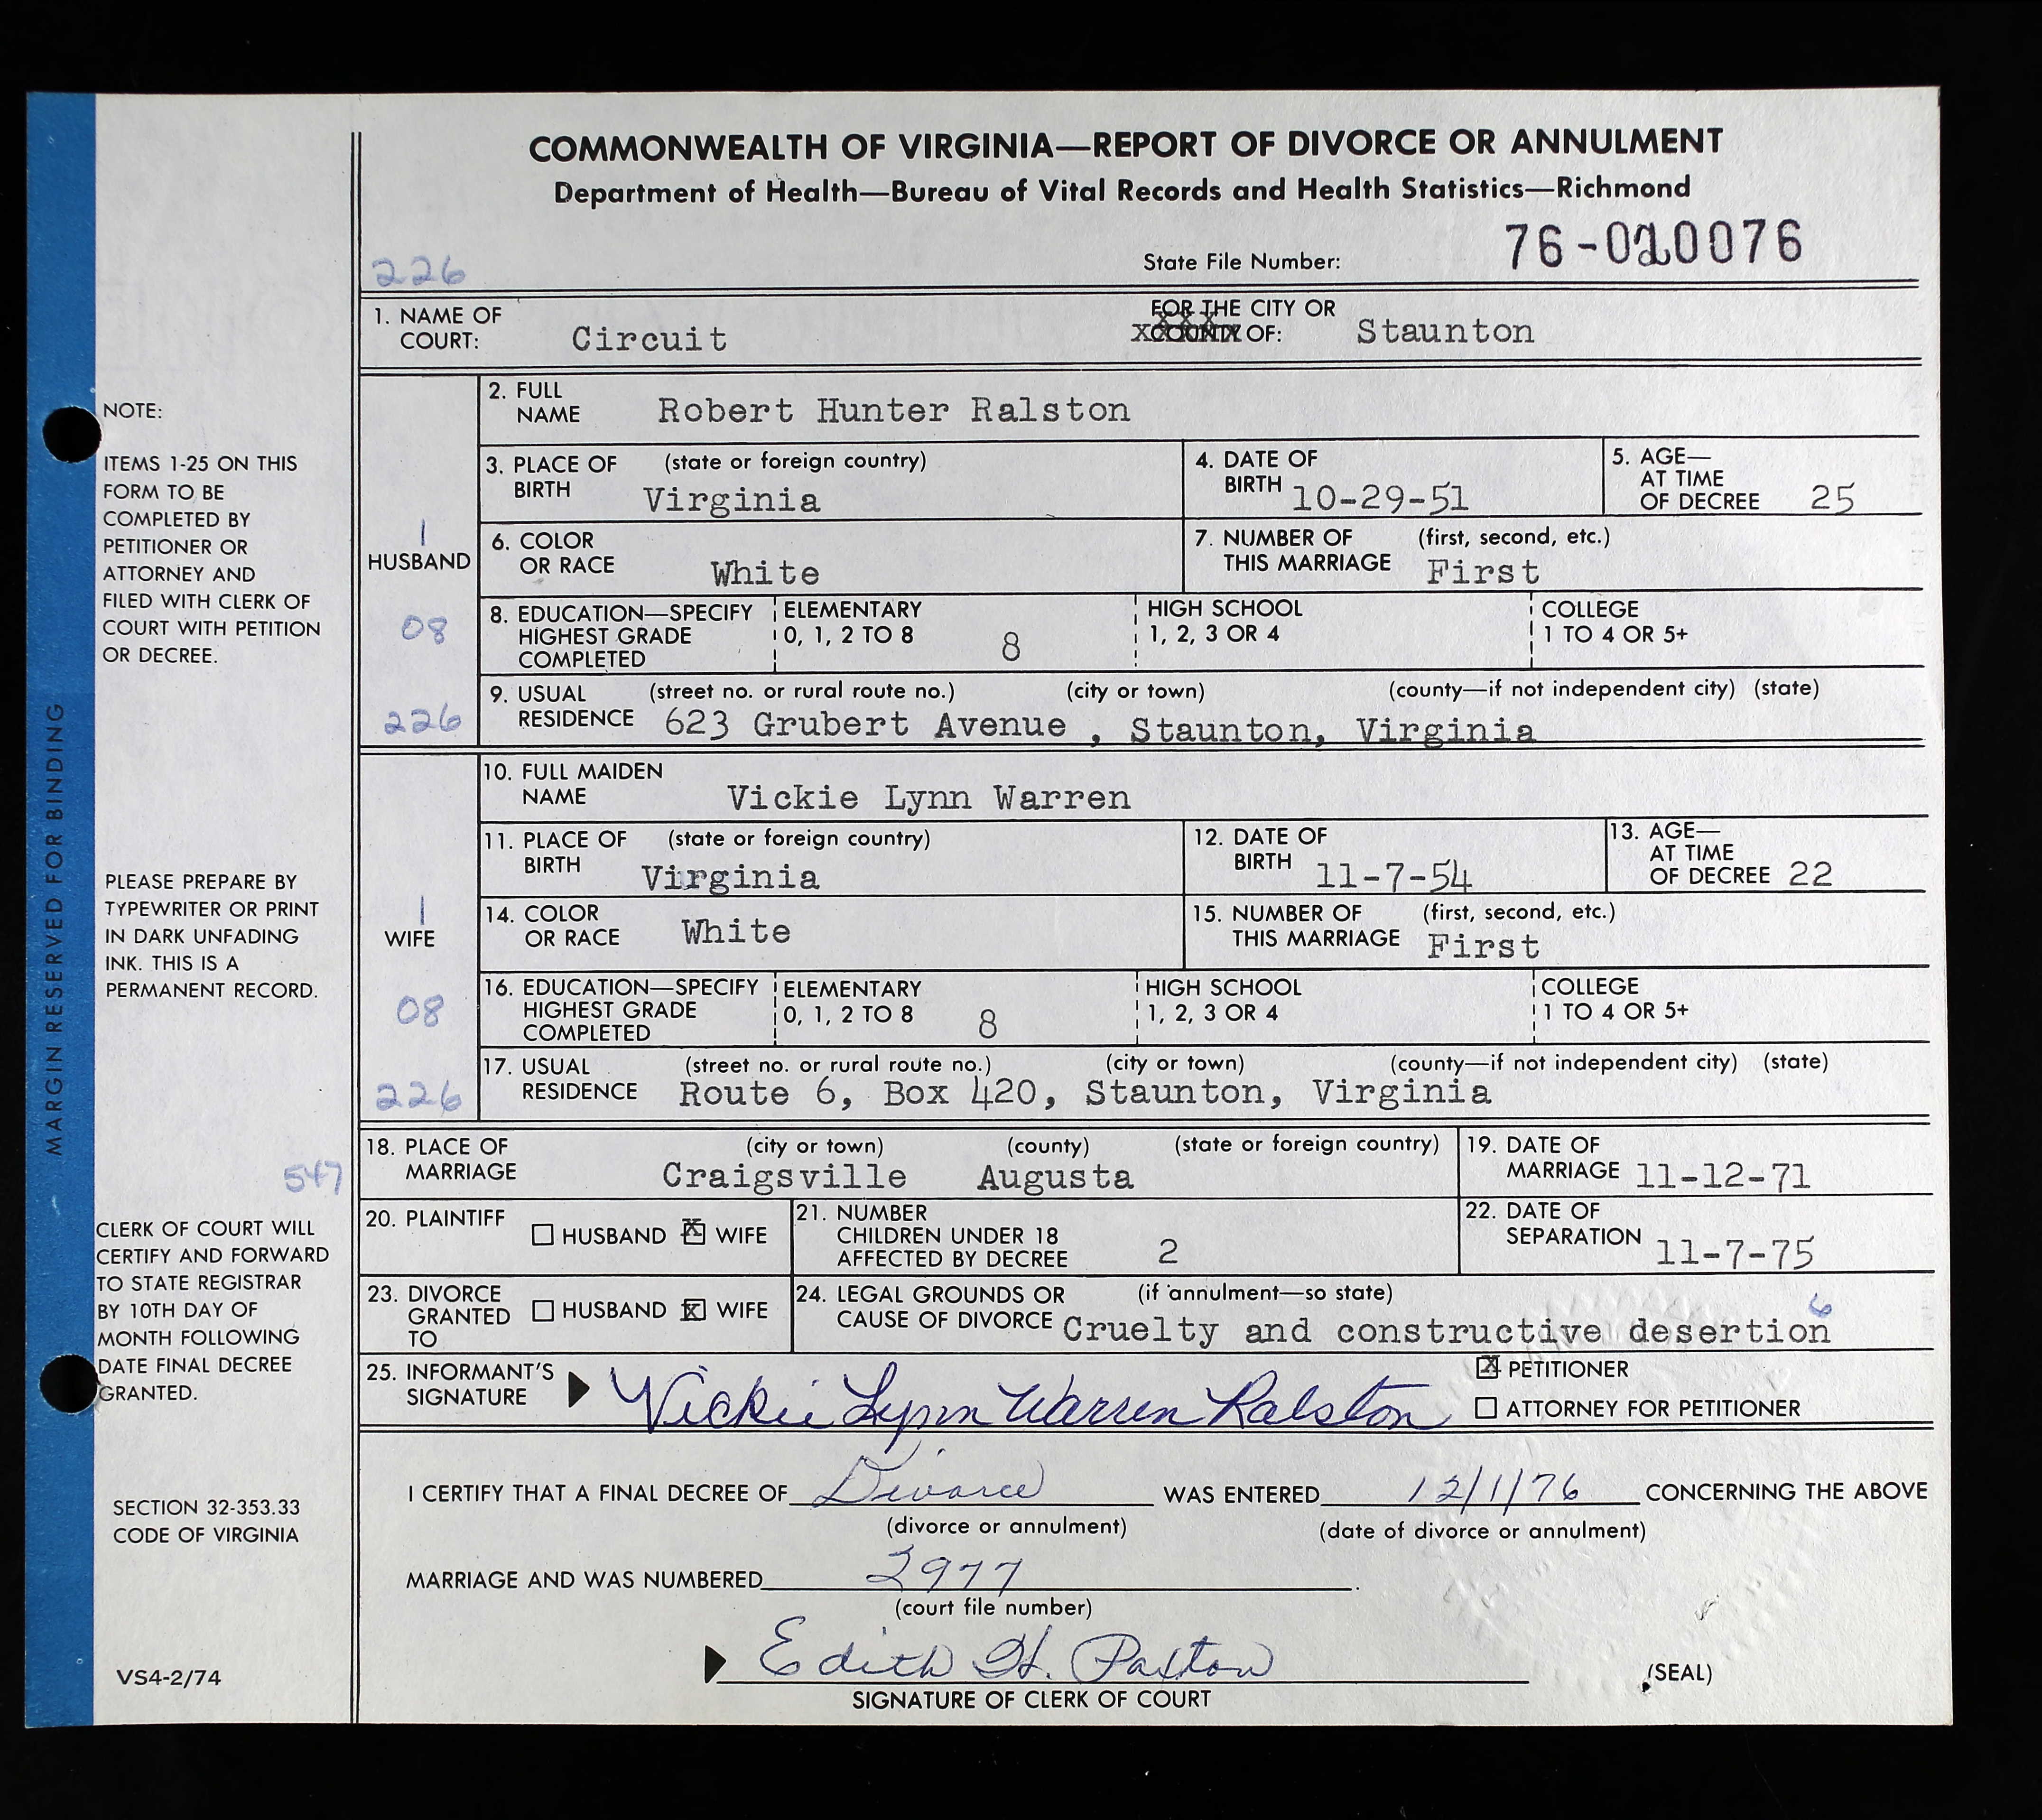 COMMONWEALTH OF VIRGINIA—REPORT OF DIVORCE OR ANNULMENT
Department of Health—Bureau of Vital Records and Health Statistics—Richmond
226
State File Number: 76-020076
1. NAME OF COURT: Circuit
FOR THE CITY OR COUNTY OF: Staunton
HUSBAND
1
08
226
2. FULL NAME Robert Hunter Ralston
3. PLACE OF BIRTH (state or foreign country) Virginia
4. DATE OF BIRTH 10-29-51
5. AGE—AT TIME OF DECREE 25
6. COLOR OR RACE White
7. NUMBER OF THIS MARRIAGE (first, second, etc.) First
8. EDUCATION—SPECIFY HIGHEST GRADE COMPLETED
ELEMENTARY 0, 1, 2 TO 8 8
HIGH SCHOOL 1, 2, 3 OR 4
COLLEGE 1 TO 4 OR 5+
9. USUAL RESIDENCE (street no. or rural route no.) (city or town) (county—if not independent city) (state)
623 Grubert Avenue , Staunton, Virginia
WIFE
1
08
226
10. FULL MAIDEN NAME Vickie Lynn Warren
11. PLACE OF BIRTH (state or foreign country) Virginia
12. DATE OF BIRTH 11-7-54
13. AGE—AT TIME OF DECREE 22
14. COLOR OR RACE White
15. NUMBER OF THIS MARRIAGE (first, second, etc.) First
16. EDUCATION—SPECIFY HIGHEST GRADE COMPLETED
ELEMENTARY 0, 1, 2 TO 8 8
HIGH SCHOOL 1, 2, 3 OR 4
COLLEGE 1 TO 4 OR 5+
17. USUAL RESIDENCE (street no. or rural route no.) (city or town) (county—if not independent city) (state)
Route 6, Box 420, Staunton, Virginia
547
18. PLACE OF MARRIAGE (city or town) (county) (state or foreign country)
Craigsville Augusta
19. DATE OF MARRIAGE 11-12-71
20. PLAINTIFF HUSBAND X WIFE
21. NUMBER CHILDREN UNDER 18 AFFECTED BY DECREE 2
22. DATE OF SEPARATION 11-7-75
23. DIVORCE GRANTED TO HUSBAND X WIFE
24. LEGAL GROUNDS OR CAUSE OF DIVORCE (if annulment—so state)
Cruelty and constructive desertion 6
25. INFORMANT'S SIGNATURE Vickie Lynn Warren Ralston
X PETITIONER
ATTORNEY FOR PETITIONER
I CERTIFY THAT A FINAL DECREE OF Divorce WAS ENTERED 12/1/76 CONCERNING THE ABOVE
(divorce or annulment) (date of divorce or annulment)
MARRIAGE AND WAS NUMBERED 2977.
(court file number)
Edith H. Paxton
SIGNATURE OF CLERK OF COURT
(SEAL)
MARGIN RESERVED FOR BINDING
NOTE:
ITEMS 1-25 ON THIS
FORM TO BE
COMPLETED BY
PETITIONER OR
ATTORNEY AND
FILED WITH CLERK OF
COURT WITH PETITION
OR DECREE.
PLEASE PREPARE BY
TYPEWRITER OR PRINT
IN DARK UNFADING
INK. THIS IS A
PERMANENT RECORD.
CLERK OF COURT WILL
CERTIFY AND FORWARD
TO STATE REGISTRAR
BY 10TH DAY OF
MONTH FOLLOWING
DATE FINAL DECREE
GRANTED.
SECTION 32-353.33
CODE OF VIRGINIA
VS4-2/74